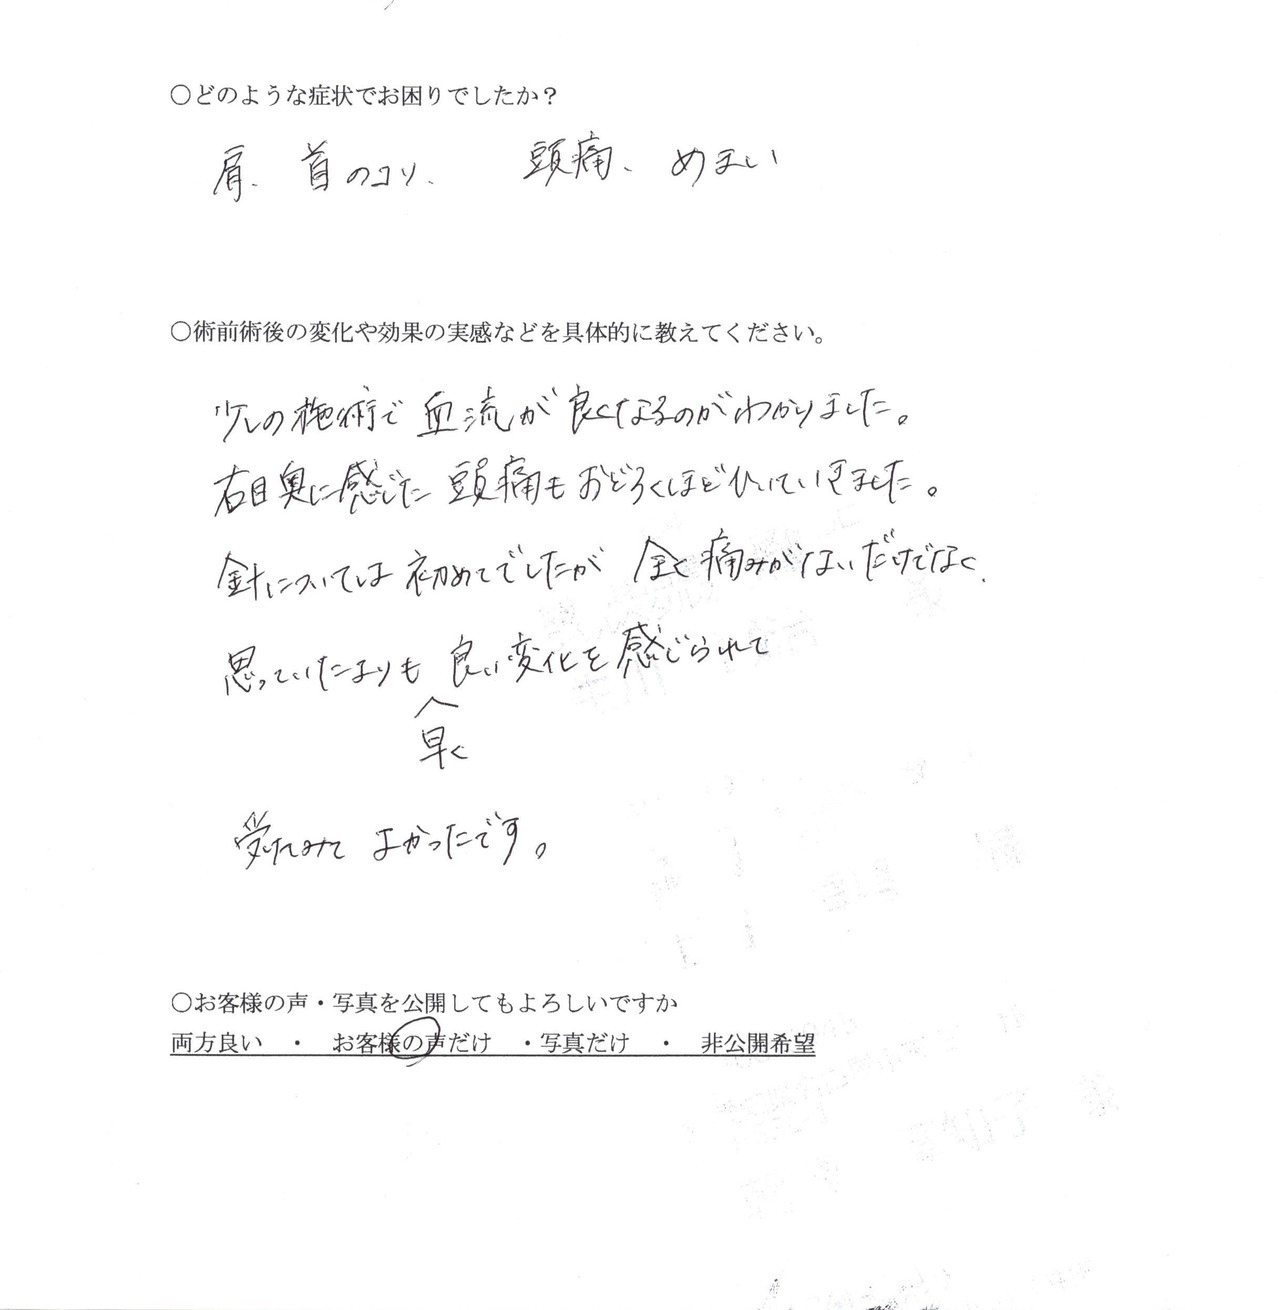 〇どのような症状でお困りでしたか？
肩、首のコリ、頭痛、めまい
〇術前術後の変化や効果の実感などを具体的に教えてください。
少しの施術で血流が良くなるのがわかりました。
右目奥に感じた頭痛もおどろくほどひいていきました。
針については初めてでしたが全く痛みがないだけでなく、
思っていたよりも良い変化を感じられて
早く
受けてみてよかったです。
〇お客様の声・写真を公開してもよろしいですか
両方良い ・ お客様の声だけ ・写真だけ ・ 非公開希望